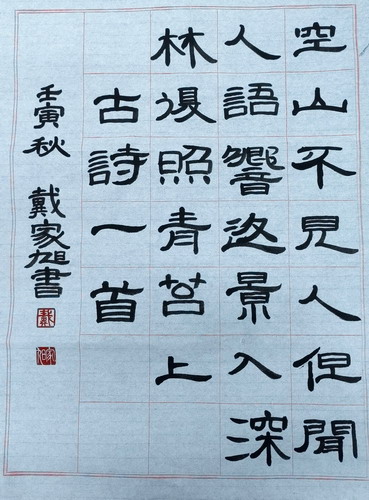 空山不見人但聞
人語響返景入深
林復照青苔上
古詩一首
壬寅秋 戴家旭書